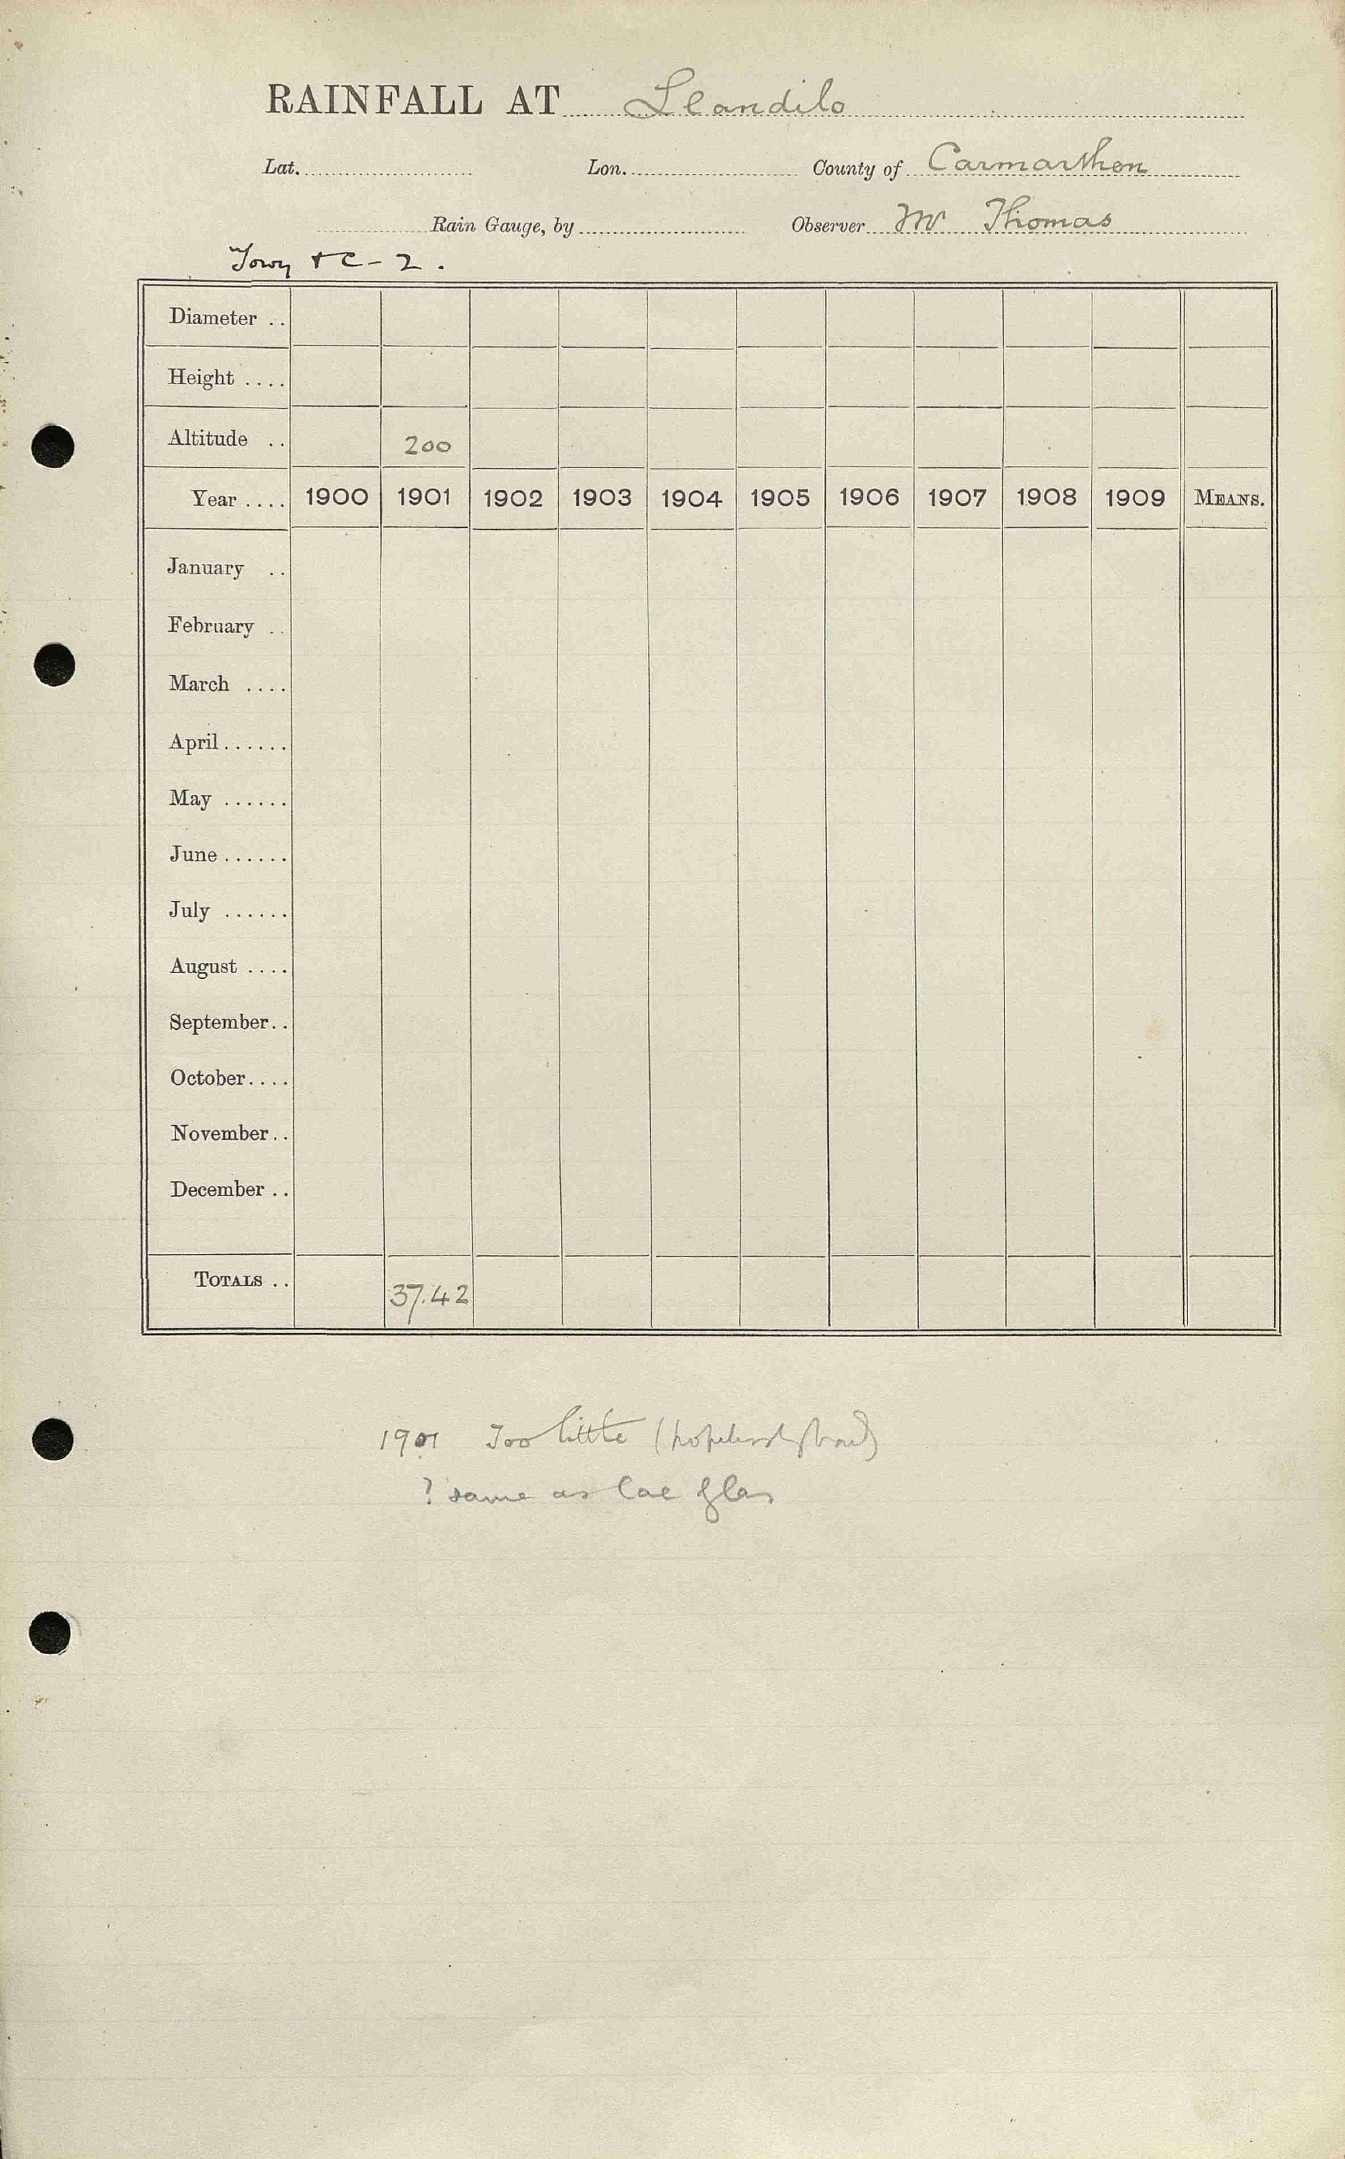 RAINFALL AT Llandilo
Lat. Lon. County of Carmarthen
Rain Gauge, by Observer Mr Thomas
Towy + C - 2.
Diameter ..
Height ....
Altitude .. 200
Year .... 1900 1901 1902 1903 1904 1905 1906 1907 1908 1909 MEANS.
January ..
February ..
March ....
April ......
May ......
June ......
July ......
August ....
September..
October....
November..
December ..
TOTALS .. 37.42
1901 Too little (hopelessly bad)
? same as Cae glas